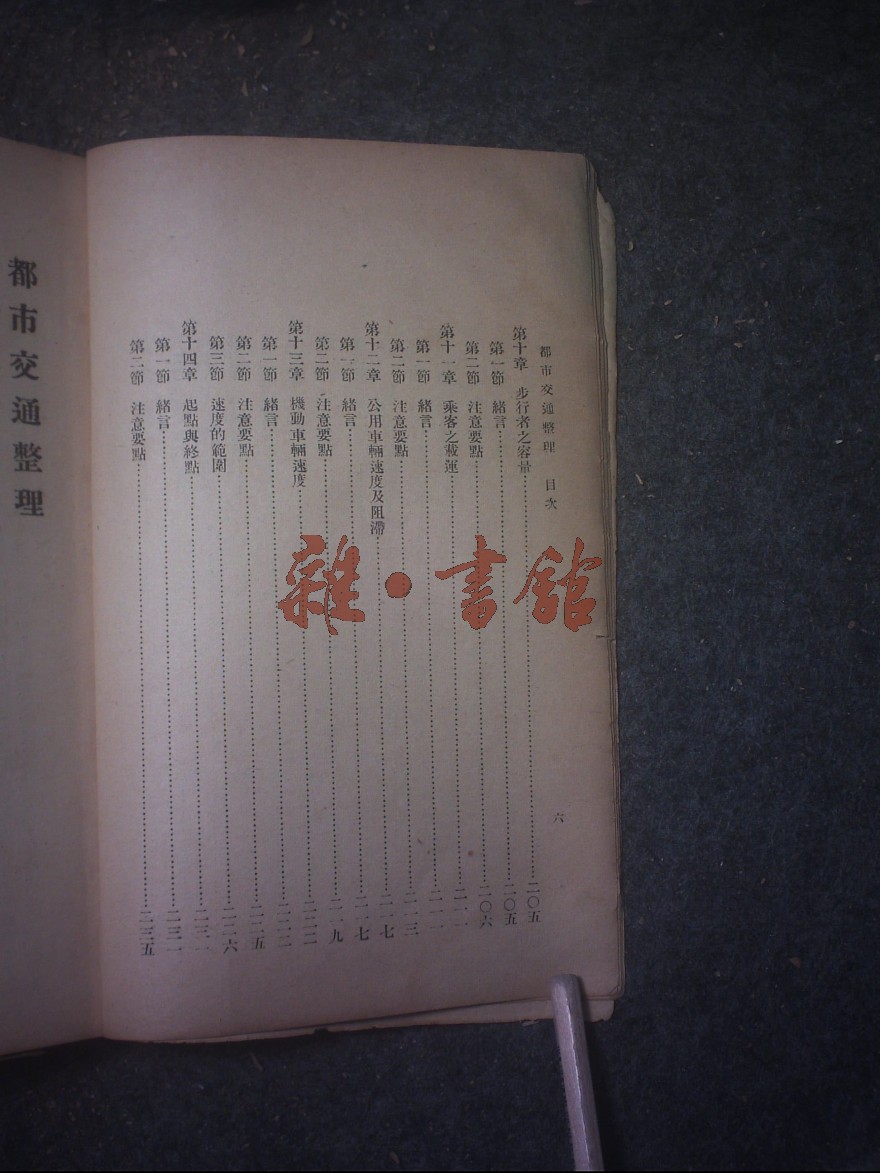 都市交通整理　目次
第十章　步行者之容量……二〇五
第一節　緒言……二〇五
第二節　注意要點……二〇六
第十一章　乘客之載運……二一一
第一節　緒言……二一一
第二節　注意要點……二一三
第十二章　公用車輛速度及阻滯……二一七
第一節　緒言……二一七
第二節　注意要點……二一九
第十三章　機動車輛速度……二二二
第一節　緒言……二二二
第二節　注意要點……二二五
第三節　速度的範圍……二二六
第十四章　起點與終點……二三一
第一節　緒言……二三一
第二節　注意要點……二三五
六
都市交通整理
雜·書館